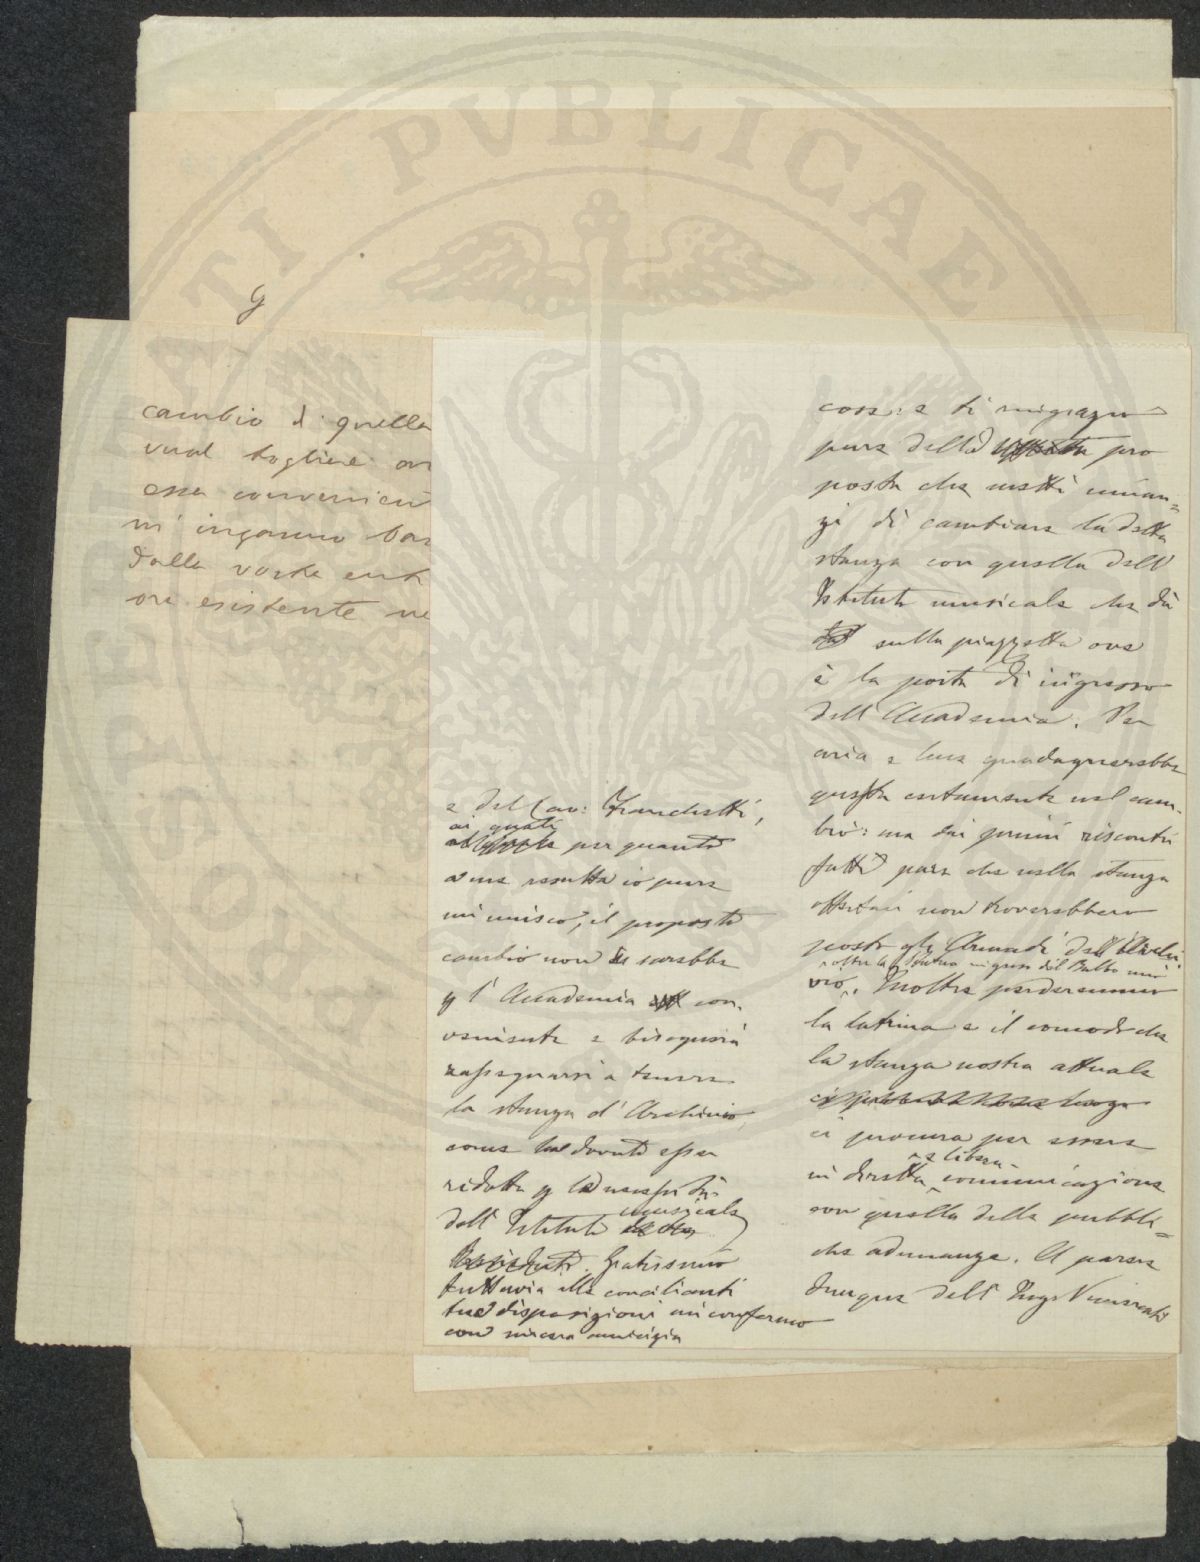 G
cambio di quella
vual togliere
essa
m'inganno
dalla vostra
ora esistente ne
e del Cav: Franchetti,
ai quali
per quanto
a me resulta io pure
mi unisco, il proposto
cambio non sarebbe
p l'Accademia con-
veniente e bisognerà
rassegnarsi a tenere
la stanza d'Archivio,
come ha dovuto esser
ridotta p la
dell'Istituto musicale
Gratissimo
tuttavia alle concilianti
tue disposizioni mi confermo
con sincera amicizia
cosa: e ti ringrazio
pure della pro
posta che metti innan=
zi di cambiare la detta
stanza con quella dell'
Istituto musicale che dà
sulla piazzetta ove
è la porta di ingresso
dell'Accademia. Per
aria e luce guadagnerebbe
questa certamente nel cam-
bio: ma dai primi riscontri
fatti pare che nella stanza
non troverebbero
posto gli Armadi dell'Archi
oltre la del Balbo
vio. Inoltre perderemmo
la latrina e il comodo che
la stanza nostra attuale
ci procura per essere
in diretta e libera comunicazione
con quella delle pubbli=
che adunanze. A parere
dunque dell'Ingr